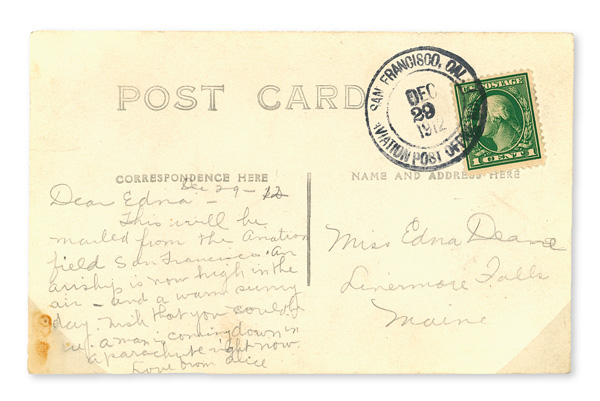 POST CARD
SAN FRANCISCO, CAL.
DEC
29
1912
AVIATION POST OFFICE
U.S. POSTAGE
1 CENT 1
CORRESPONDENCE HERE
NAME AND ADDRESS HERE
Dec 29 - 12
Dear Edna -
This will be
mailed from the Aviation
field San Francisco. An
airship is now high in the
air - and a warm sunny
day. Wish that you could
a man coming down in
a parachute right now.
Love from Alice
Miss Edna Deane
Livermore Falls
Maine